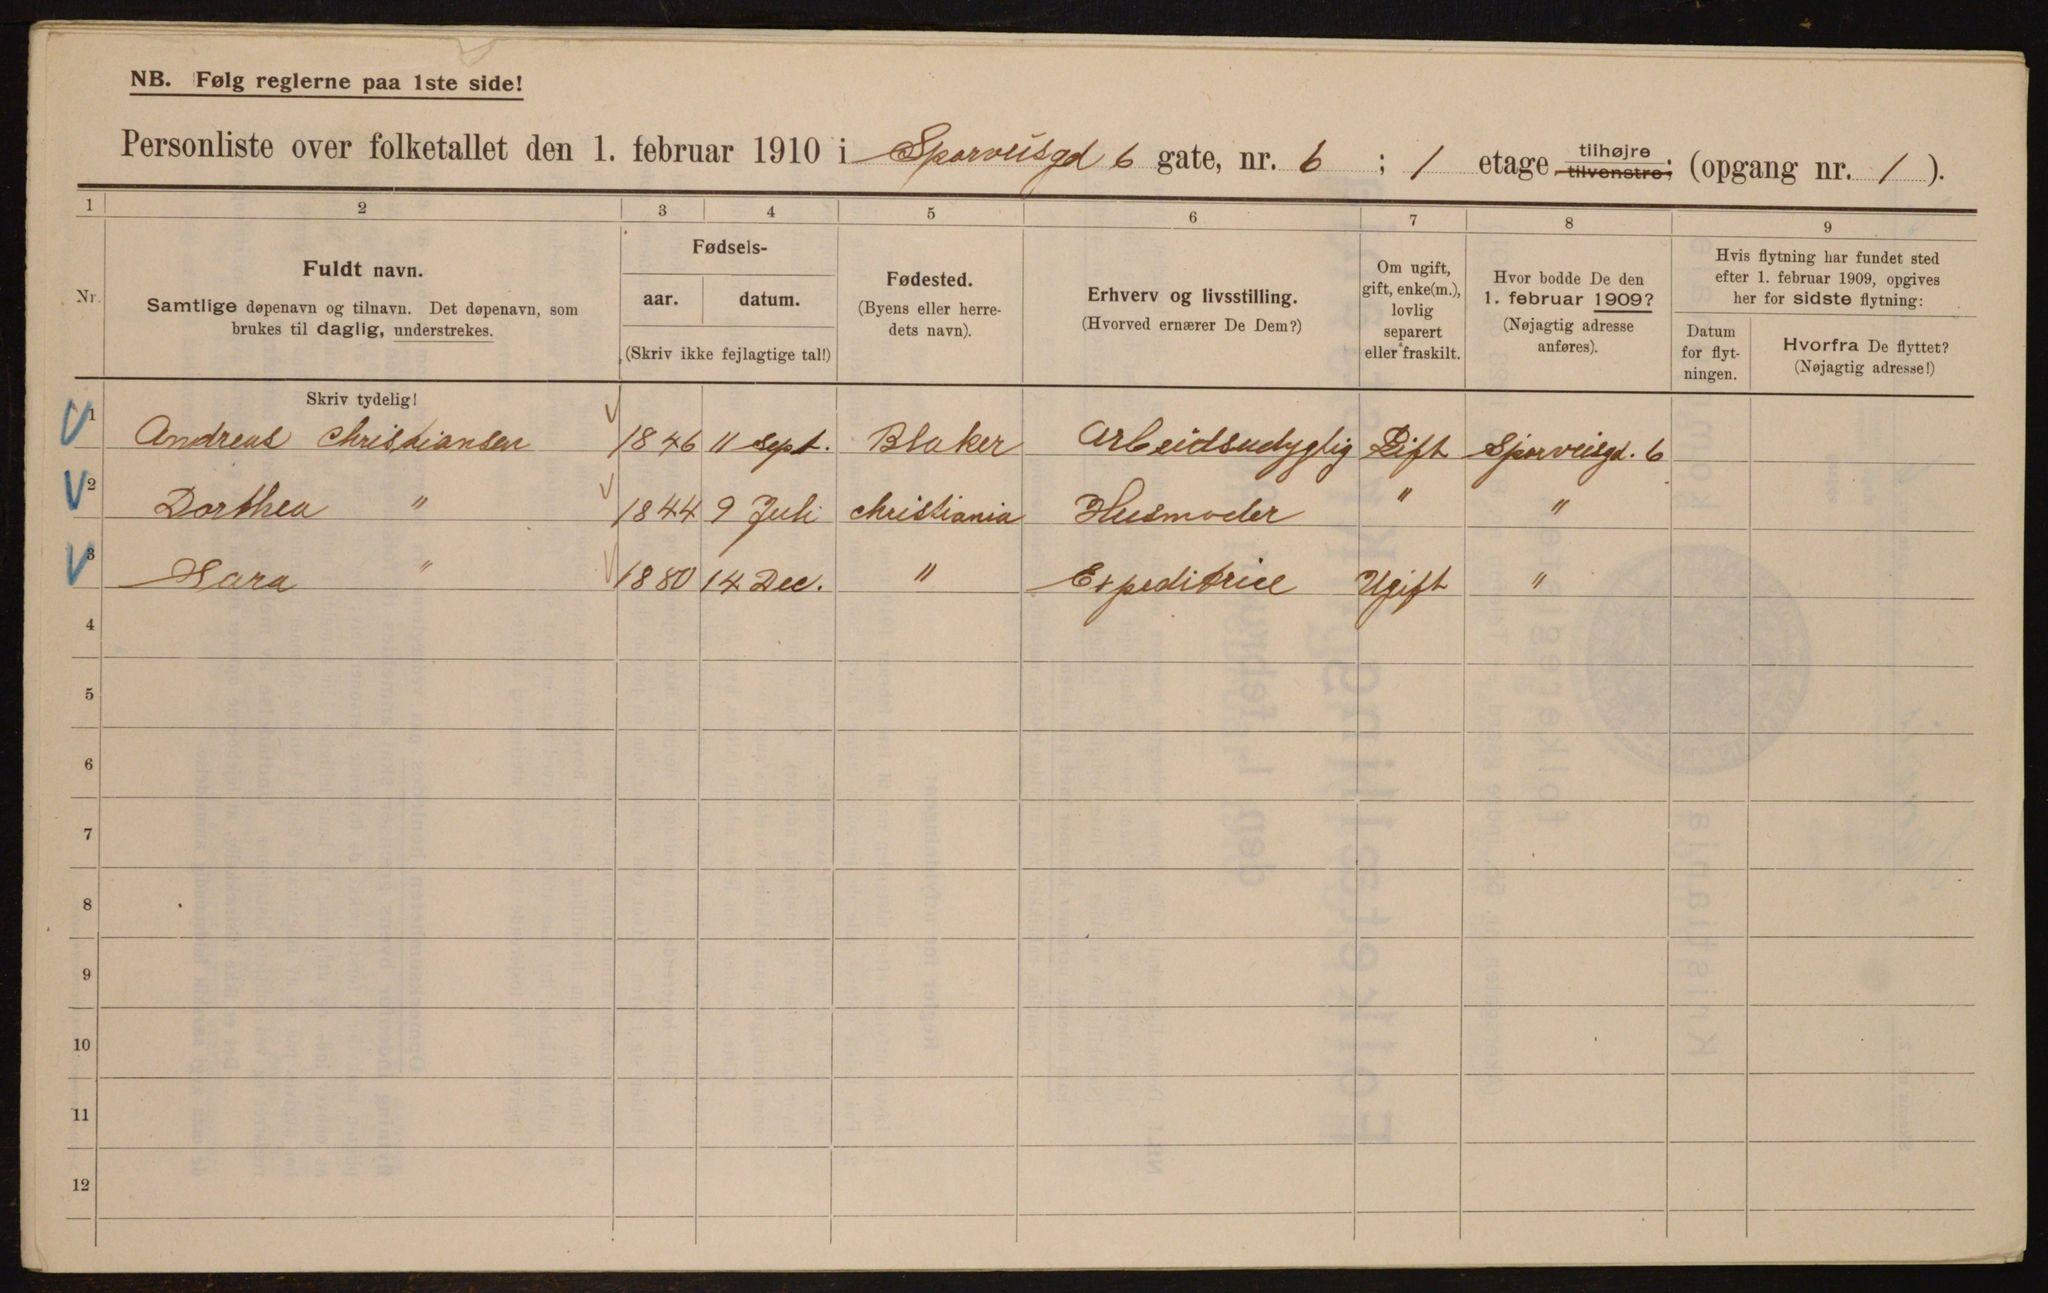 NB. Følg reglerne paa 1ste side!
Personliste over folketallet den 1. februar 1910 i Sporveisgd 6 gate, nr. 6 ; 1 etage tilhøjre tilvenstre; (opgang nr. 1 ).
1 2 3 4 5 6 7 8 9
Nr.
Fuldt navn.
Samtlige døpenavn og tilnavn. Det døpenavn, som
brukes til daglig, understrekes.
Fødsels-
aar. datum.
(Skriv ikke fejlagtige tal!)
Fødested.
(Byens eller herre-
dets navn).
Erhverv og livsstilling.
(Hvorved ernærer De Dem?)
Om ugift,
gift, enke(m.),
lovlig
separert
eller fraskilt.
Hvor bodde De den
1. februar 1909?
(Nøjagtig adresse
anføres).
Hvis flytning har fundet sted
efter 1. februar 1909, opgives
her for sidste flytning:
Datum
for flyt-
ningen.
Hvorfra De flyttet?
(Nøjagtig adresse!)
Skriv tydelig!
1 Andreas Christiansen 1846 11 Sept. Blaker Arbeidsudygtig Gift Sporveisgd. 6
2 Dorthea " 1844 9 Juli Christiania Husmoder " "
3 Sara " 1880 14 Dec. " Expeditrice Ugift "
4
5
6
7
8
9
10
11
12